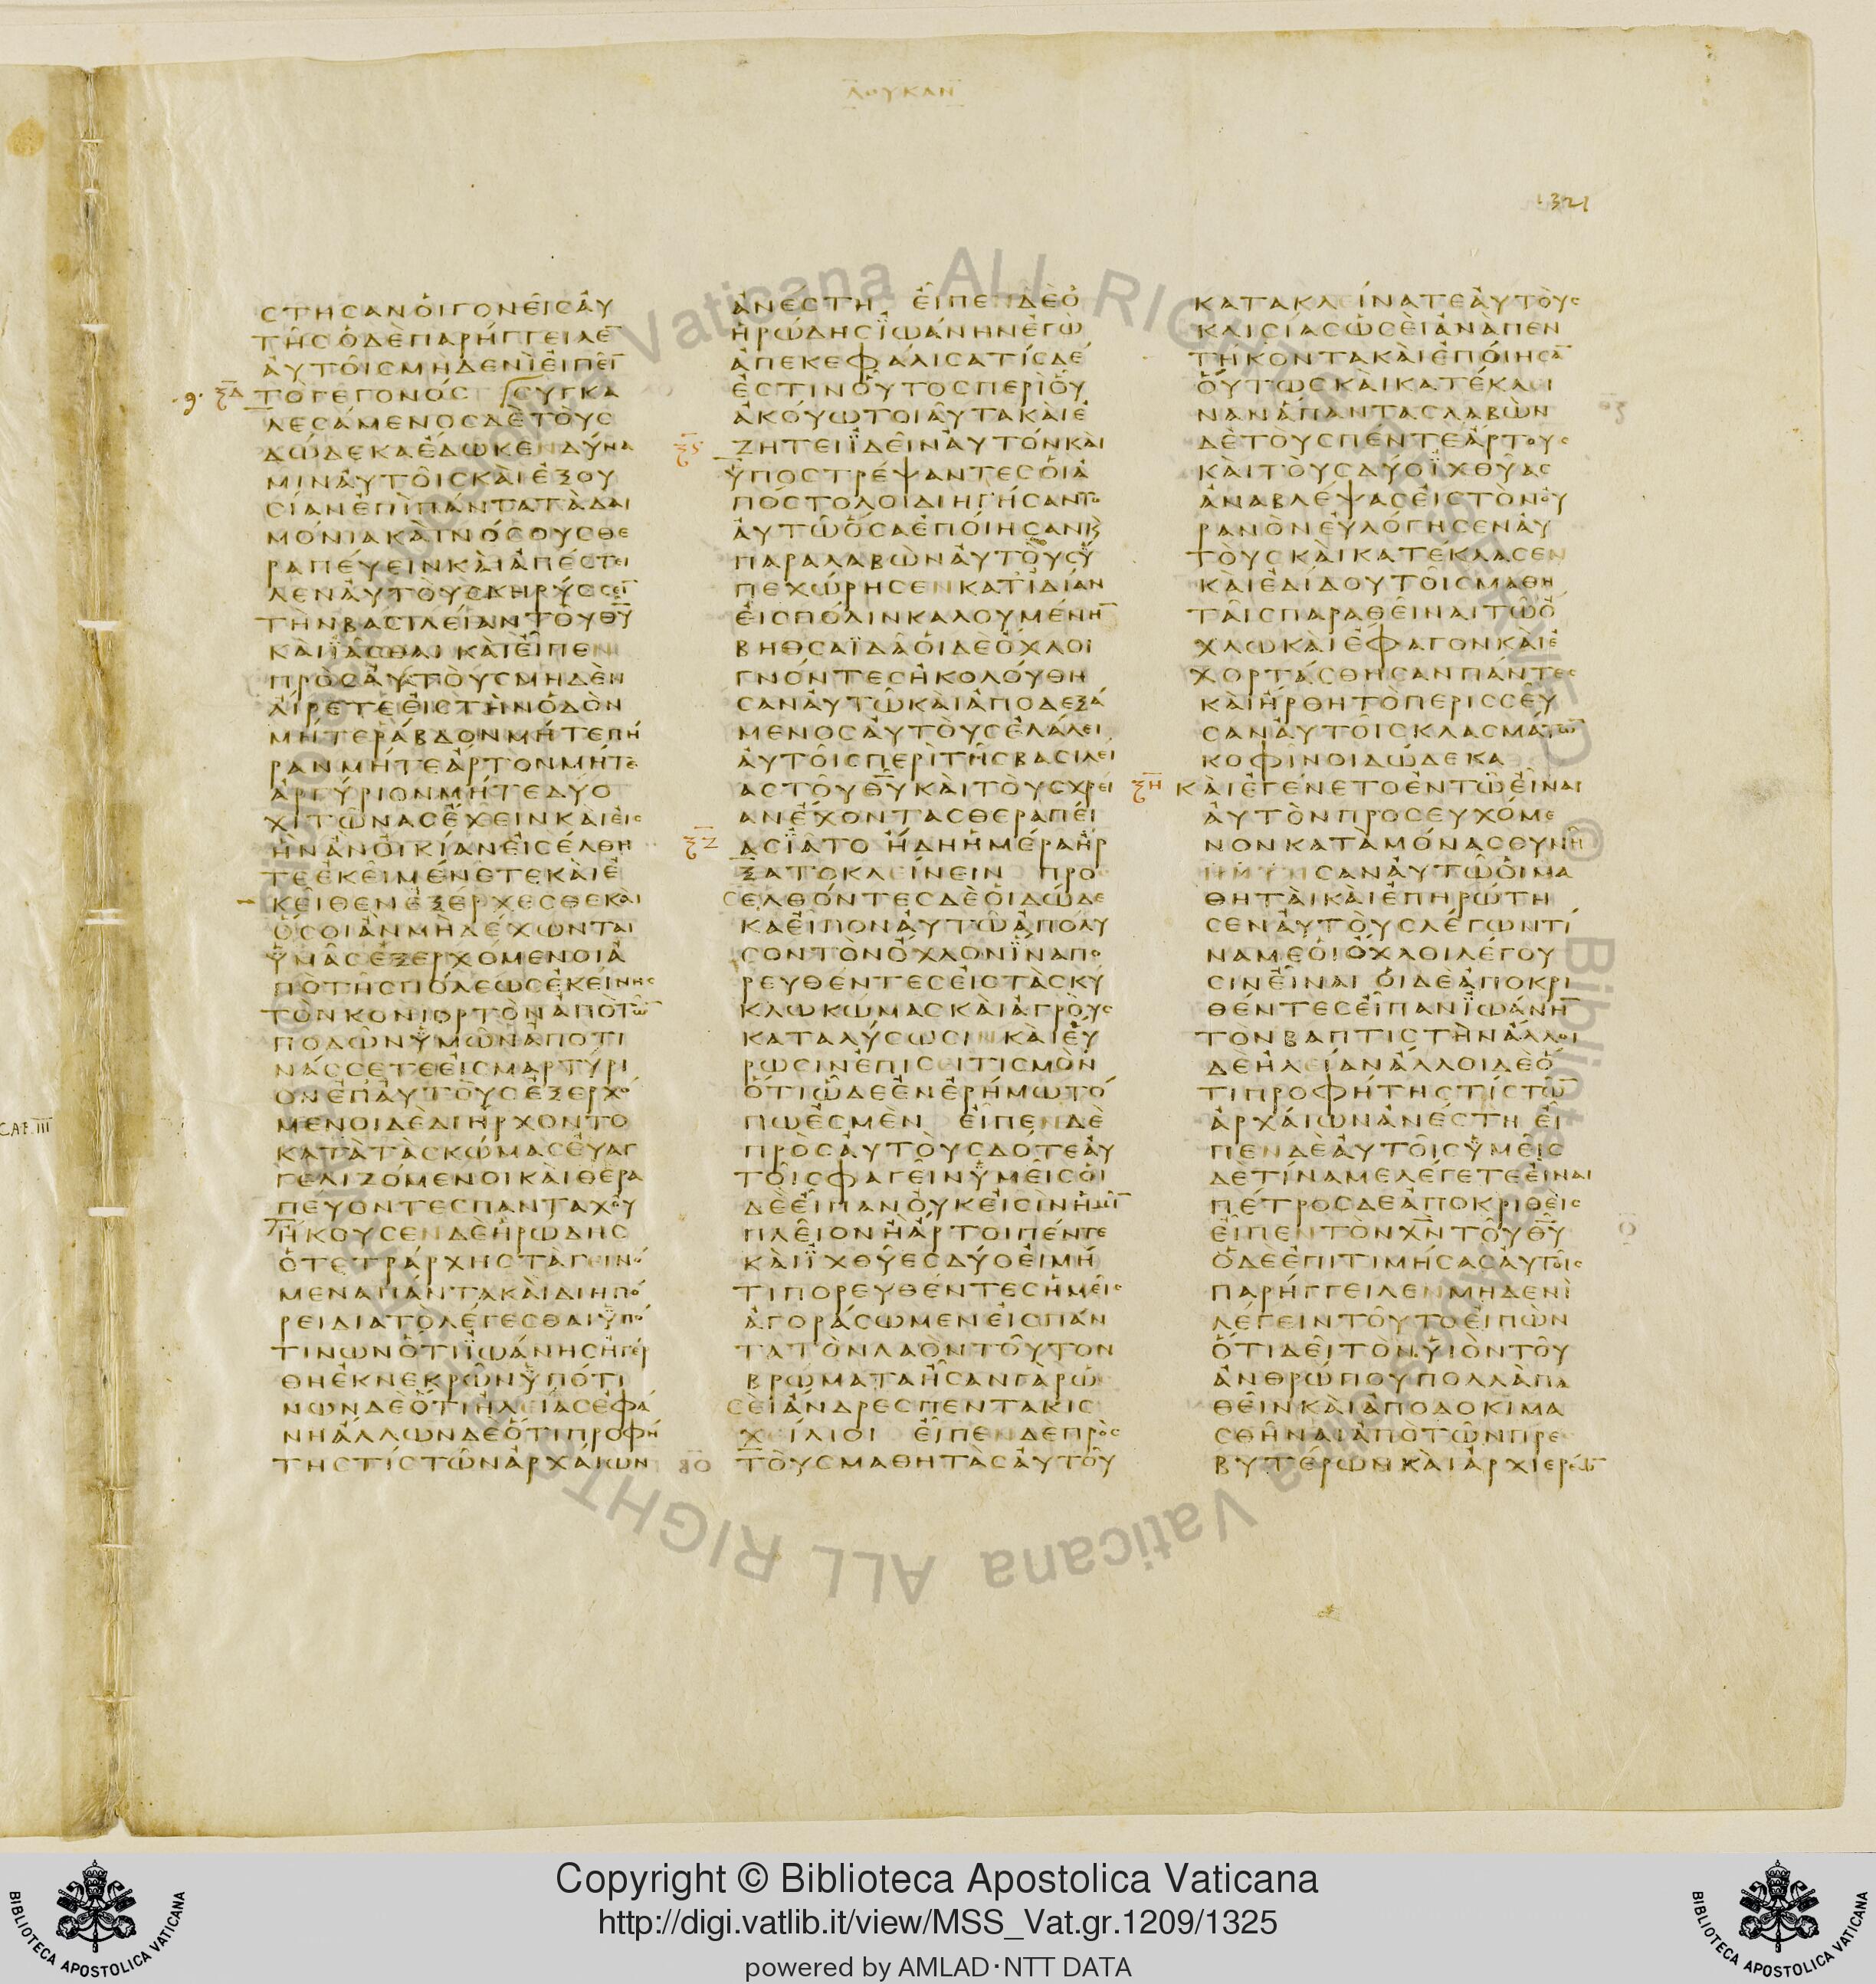 ΛΟΥΚΑΝ
1321
ΣΤΗΣΑΝΟΙΓΟΝΕΙΣΑΥ
ΤΗΣΟΔΕΠΑΡΗΓΓΕΙΛΕ̅
ΑΥΤΟΙΣΜΗΔΕΝΙΕΙΠΕΙ̅
ΤΟΓΕΓΟΝΟΣ ΣΥΓΚΑ
ΛΕΣΑΜΕΝΟΣΔΕΤΟΥΣ
ΔΩΔΕΚΑΕΔΩΚΕΝΔΥΝΑ
ΜΙΝΑΥΤΟΙΣΚΑΙΕΞΟΥ
ΣΙΑΝΕΠΙΠΑΝΤΑΤΑΔΑΙ
ΜΟΝΙΑΚΑΙΝΟΣΟΥΣΘΕ
ΡΑΠΕΥΕΙΝΚΑΙΑΠΕΣΤΕΙ
ΛΕΝΑΥΤΟΥΣΚΗΡΥΣΣΕΙ̅
ΤΗΝΒΑΣΙΛΕΙΑΝΤΟΥΘ̅Υ̅
ΚΑΙΪΑΣΘΑΙ ΚΑΙΕΙΠΕΝ
ΠΡΟΣΑΥΤΟΥΣΜΗΔΕΝ
ΑΙΡΕΤΕΕΙΣΤΗΝΟΔΟΝ
ΜΗΤΕΡΑΒΔΟΝΜΗΤΕΠΗ
ΡΑΝΜΗΤΕΑΡΤΟΝΜΗΤΕ
ΑΡΓΥΡΙΟΝΜΗΤΕΔΥΟ
ΧΙΤΩΝΑΣΕΧΕΙΝΚΑΙΕΙΣ
ΗΝΑΝΟΙΚΙΑΝΕΙΣΕΛΘΗ
ΤΕΕΚΕΙΜΕΝΕΤΕΚΑΙΕ
ΚΕΙΘΕΝΕΞΕΡΧΕΣΘΕΚΑΙ
ΟΣΟΙΑΝΜΗΔΕΧΩΝΤΑΙ
ΫΜΑΣΕΞΕΡΧΟΜΕΝΟΙΑ
ΠΟΤΗΣΠΟΛΕΩΣΕΚΕΙΝΗΣ
ΤΟΝΚΟΝΙΟΡΤΟΝΑΠΟΤΩ̅
ΠΟΔΩΝΫΜΩΝΑΠΟΤΙ
ΝΑΣΣΕΤΕΕΙΣΜΑΡΤΥΡΙ
ΟΝΕΠΑΥΤΟΥΣΕΞΕΡΧΟ
ΜΕΝΟΙΔΕΔΙΗΡΧΟΝΤΟ
ΚΑΤΑΤΑΣΚΩΜΑΣΕΥΑΓ
ΓΕΛΙΖΟΜΕΝΟΙΚΑΙΘΕΡΑ
ΠΕΥΟΝΤΕΣΠΑΝΤΑΧΟΥ
ΗΚΟΥΣΕΝΔΕΗΡΩΔΗΣ
ΟΤΕΤΡΑΡΧΗΣΤΑΓΕΙΝΟ
ΜΕΝΑΠΑΝΤΑΚΑΙΔΙΗΠΟ
ΡΕΙΔΙΑΤΟΛΕΓΕΣΘΑΙΫΠΟ
ΤΙΝΩΝΟΤΙΪΩΑΝΗΣΗΓΕΡ
ΘΗΕΚΝΕΚΡΩΝΫΠΟΤΙ
ΝΩΝΔΕΟΤΙΗΛΕΙΑΣΕΦΑ
ΝΗΑΛΛΩΝΔΕΟΤΙΠΡΟΦΗ
ΤΗΣΤΙΣΤΩΝΑΡΧΑΙΩΝ
ΑΝΕΣΤΗ ΕΙΠΕΝΔΕΟ
ΗΡΩΔΗΣΪΩΑΝΗΝΕΓΩ
ΑΠΕΚΕΦΑΛΙΣΑΤΙΣΔΕ
ΕΣΤΙΝΟΥΤΟΣΠΕΡΙΟΥ
ΑΚΟΥΩΤΟΙΑΥΤΑΚΑΙΕ
ΖΗΤΕΙΪΔΕΙΝΑΥΤΟΝΚΑΙ
ΫΠΟΣΤΡΕΨΑΝΤΕΣΟΙΑ
ΠΟΣΤΟΛΟΙΔΙΗΓΗΣΑΝΤΟ
ΑΥΤΩΟΣΑΕΠΟΙΗΣΑΝΚ
ΠΑΡΑΛΑΒΩΝΑΥΤΟΥΣΫ
ΠΕΧΩΡΗΣΕΝΚΑΤΙΔΙΑΝ
ΕΙΣΠΟΛΙΝΚΑΛΟΥΜΕΝΗ̅
ΒΗΘΣΑΪΔΑΟΙΔΕΟΧΛΟΙ
ΓΝΟΝΤΕΣΗΚΟΛΟΥΘΗ
ΣΑΝΑΥΤΩΚΑΙΑΠΟΔΕΞΑ
ΜΕΝΟΣΑΥΤΟΥΣΕΛΑΛΕΙ
ΑΥΤΟΙΣΠΕΡΙΤΗΣΒΑΣΙΛΕΙ
ΑΣΤΟΥΘ̅Υ̅ΚΑΙΤΟΥΣΧΡΕΙ
ΑΝΕΧΟΝΤΑΣΘΕΡΑΠΕΙ
ΑΣΪΑΤΟ ΗΔΗΗΜΕΡΑΗΡ
ΞΑΤΟΚΛΕΙΝΕΙΝ ΠΡΟ
ΣΕΛΘΟΝΤΕΣΔΕΟΙΔΩΔΕ
ΚΑΕΙΠΟΝΑΥΤΩΑΠΟΛΥ
ΣΟΝΤΟΝΟΧΛΟΝΪΝΑΠΟ
ΡΕΥΘΕΝΤΕΣΕΙΣΤΑΣΚΥ
ΚΛΩΚΩΜΑΣΚΑΙΑΓΡΟΥΣ
ΚΑΤΑΛΥΣΩΣΙΝΚΑΙΕΥ
ΡΩΣΙΝΕΠΙΣΕΙΤΙΣΜΟΝ
ΟΤΙΩΔΕΕΝΕΡΗΜΩΤΟ
ΠΩΕΣΜΕΝ ΕΙΠΕΝΔΕ
ΠΡΟΣΑΥΤΟΥΣΔΟΤΕΑΥ
ΤΟΙΣΦΑΓΕΙΝΫΜΕΙΣΟΙ
ΔΕΕΙΠΑΝΟΥΚΕΙΣΙΝΗΜΙ̅
ΠΛΕΙΟΝΗΑΡΤΟΙΠΕΝΤΕ
ΚΑΙΪΧΘΥΕΣΔΥΟΕΙΜΗ
ΤΙΠΟΡΕΥΘΕΝΤΕΣΗΜΕΙΣ
ΑΓΟΡΑΣΩΜΕΝΕΙΣΠΑΝ
ΤΑΤΟΝΛΑΟΝΤΟΥΤΟΝ
ΒΡΩΜΑΤΑΗΣΑΝΓΑΡΩ
ΣΕΙΑΝΔΡΕΣΠΕΝΤΑΚΙΣ
ΧΕΙΛΙΟΙ ΕΙΠΕΝΔΕΠΡΟΣ
ΤΟΥΣΜΑΘΗΤΑΣΑΥΤΟΥ
ΚΑΤΑΚΛΕΙΝΑΤΕΑΥΤΟΥΣ
ΚΛΙΣΙΑΣΩΣΕΙΑΝΑΠΕΝ
ΤΗΚΟΝΤΑΚΑΙΕΠΟΙΗΣΑ̅
ΟΥΤΩΣΚΑΙΚΑΤΕΚΛΕΙ
ΝΑΝΑΠΑΝΤΑΣΛΑΒΩΝ
ΔΕΤΟΥΣΠΕΝΤΕΑΡΤΟΥΣ
ΚΑΙΤΟΥΣΔΥΟΪΧΘΥΑΣ
ΑΝΑΒΛΕΨΑΣΕΙΣΤΟΝΟΥ
ΡΑΝΟΝΕΥΛΟΓΗΣΕΝΑΥ
ΤΟΥΣΚΑΙΚΑΤΕΚΛΑΣΕΝ
ΚΑΙΕΔΙΔΟΥΤΟΙΣΜΑΘΗ
ΤΑΙΣΠΑΡΑΘΕΙΝΑΙΤΩΟ
ΧΛΩΚΑΙΕΦΑΓΟΝΚΑΙΕ
ΧΟΡΤΑΣΘΗΣΑΝΠΑΝΤΕΣ
ΚΑΙΗΡΘΗΤΟΠΕΡΙΣΣΕΥ
ΣΑΝΑΥΤΟΙΣΚΛΑΣΜΑΤΩ̅
ΚΟΦΙΝΟΙΔΩΔΕΚΑ
ΚΑΙΕΓΕΝΕΤΟΕΝΤΩΕΙΝΑΙ
ΑΥΤΟΝΠΡΟΣΕΥΧΟΜΕ
ΝΟΝΚΑΤΑΜΟΝΑΣΣΥΝΗ
ΣΑΝΑΥΤΩΟΙΜΑ
ΘΗΤΑΙΚΑΙΕΠΗΡΩΤΗ
ΣΕΝΑΥΤΟΥΣΛΕΓΩΝΤΙ
ΝΑΜΕΟΙΟΧΛΟΙΛΕΓΟΥ
ΣΙΝΕΙΝΑΙ ΟΙΔΕΑΠΟΚΡΙ
ΘΕΝΤΕΣΕΙΠΑΝΪΩΑΝΗ̅
ΤΟΝΒΑΠΤΙΣΤΗΝΑΛΛΟΙ
ΔΕΗΛΕΙΑΝΑΛΛΟΙΔΕΟ
ΤΙΠΡΟΦΗΤΗΣΤΙΣΤΩ̅
ΑΡΧΑΙΩΝΑΝΕΣΤΗ ΕΙ
ΠΕΝΔΕΑΥΤΟΙΣΫΜΕΙΣ
ΔΕΤΙΝΑΜΕΛΕΓΕΤΕΕΙΝΑΙ
ΠΕΤΡΟΣΔΕΑΠΟΚΡΙΘΕΙΣ
ΕΙΠΕΝΤΟΝΧ̅Ν̅ΤΟΥΘ̅Υ̅
ΟΔΕΕΠΙΤΙΜΗΣΑΣΑΥΤΟΙΣ
ΠΑΡΗΓΓΕΙΛΕΝΜΗΔΕΝΙ
ΛΕΓΕΙΝΤΟΥΤΟΕΙΠΩΝ
ΟΤΙΔΕΙΤΟΝΥΙΟΝΤΟΥ
ΑΝΘΡΩΠΟΥΠΟΛΛΑΠΑ
ΘΕΙΝΚΑΙΑΠΟΔΟΚΙΜΑ
ΣΘΗΝΑΙΑΠΟΤΩΝΠΡΕ
ΒΥΤΕΡΩΝΚΑΙΑΡΧΙΕΡΕΩ̅
Copyright © Biblioteca Apostolica Vaticana
http://digi.vatlib.it/view/MSS_Vat.gr.1209/1325
powered by AMLAD·NTT DATA
BIBLIOTECA APOSTOLICA VATICANA
BIBLIOTECA APOSTOLICA VATICANA